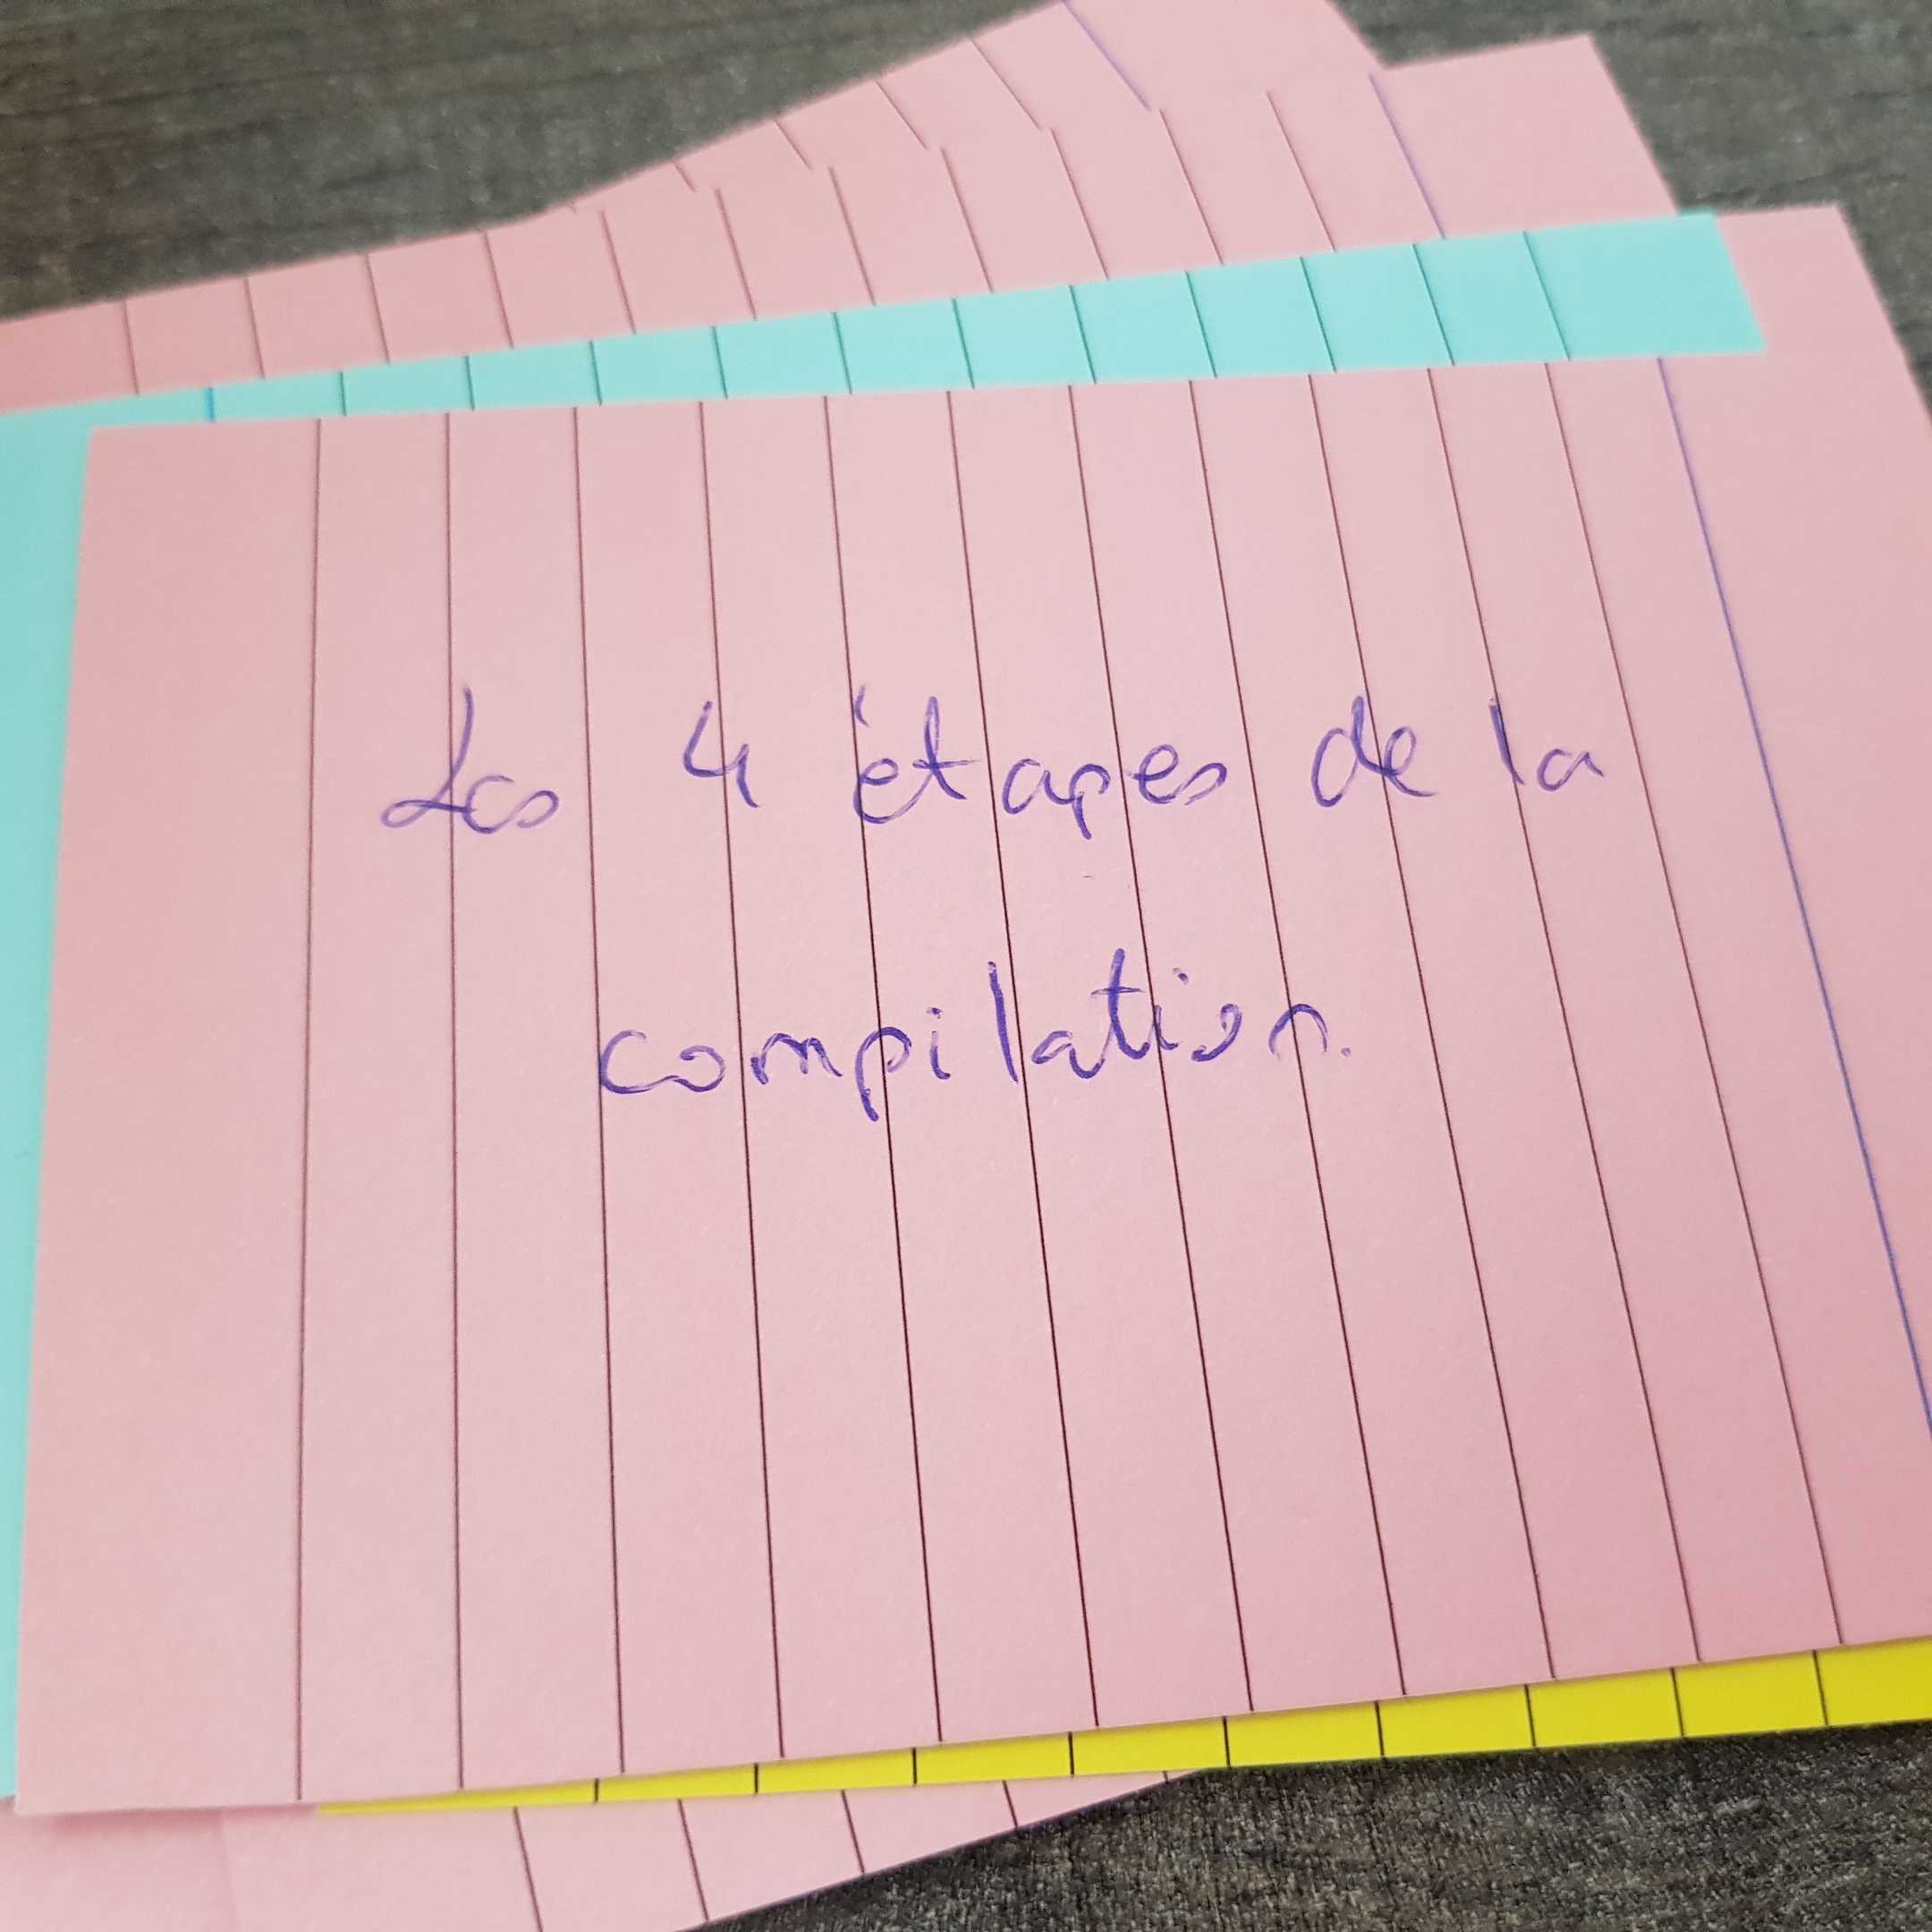 Les 4 étapes de la
compilation.